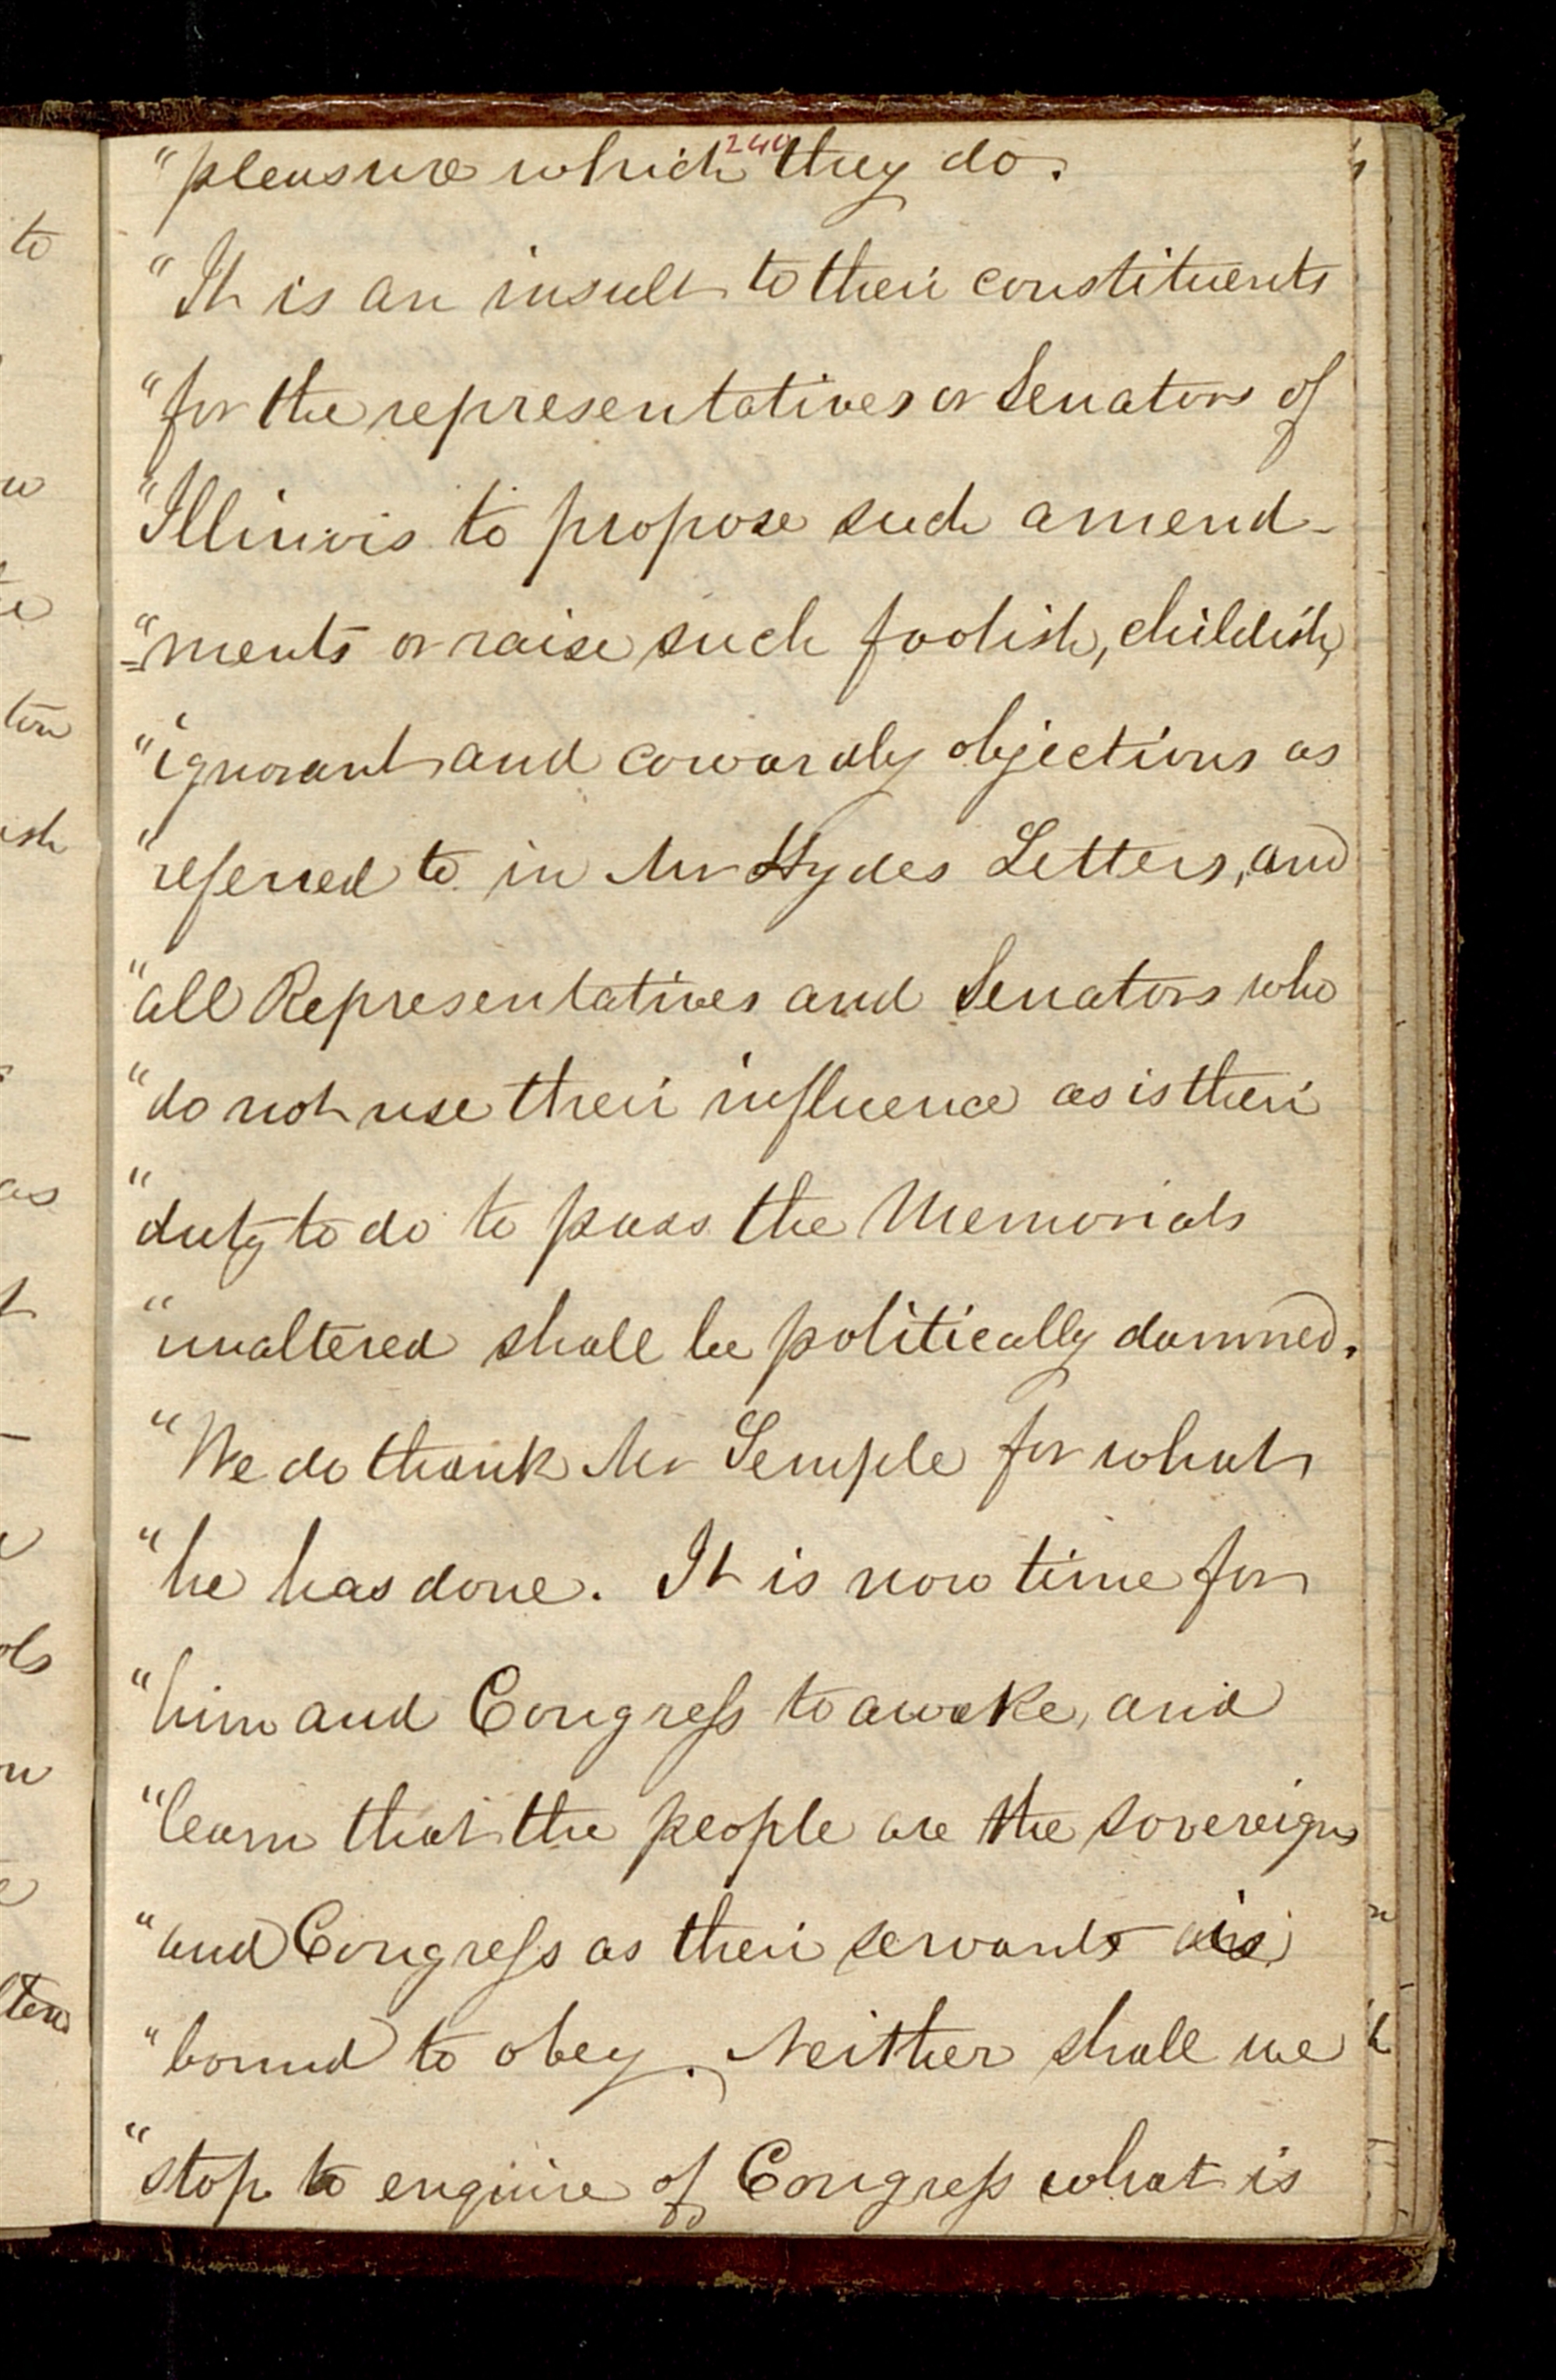 240
"pleasure which they do.
"It is an insult to their constituents
"for the representatives or Senators of
"Illinois to propose such amend-
"=ments or raise such foolish, childish,
"ignorant and cowardly objections as
"referred to in Mr Hydes Letters, and
"all Representatives and Senators who
"do not use their influence as is their
"duty to do to pass the Memorials
"unaltered shall be politically damned.
"We do thank Mr Semple for what
"he has done. It is now time for
"him and Congress to awake, and
"learn that the people are the sovereigns
"and Congress as their servants is
"bound to obey. Neither shall we
"stop to enquire of Congress what is
to
ten
ish
as